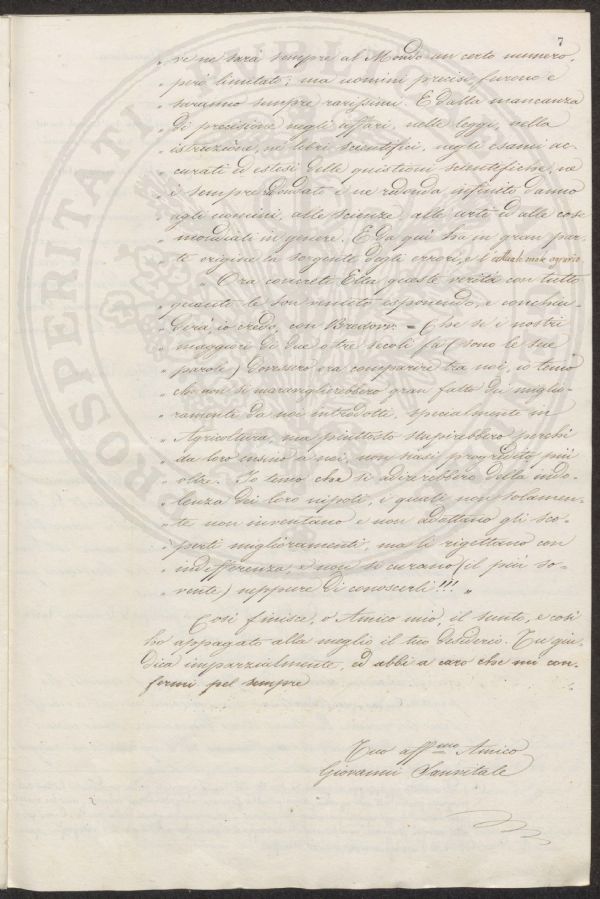 7
„ ve ne sarà sempre al Mondo un certo numero,
„ però limitato; ma uomini precisi furono e
„ saranno sempre rarissimi. E dalla mancanza
„ di precisione negli affari, nelle leggi, nella
„ istruzione, ne' libri scientifici, negli esami ac-
„ curati ed estesi delle quistioni scientifiche, ne
„ è sempre ridondato e ne ridonda infinito danno
„ agli uomini, alle scienze, alle arti ed alle cose
„ mondiali in genere. E da quì ha in gran par-
„ te origine la sorgente degli errori, e l'attuale
„ Ora connetta Ella queste verità con tutto
„ quanto le son venuto esponendo, e conchiu-
„ derà, io credo, con = Che se i nostri
„ maggiori di due o tre secoli fa (sono le sue
„ parole) dovessero ora comparire tra noi, io temo
„ che non si maraviglierebbero gran fatto dei miglio-
„ ramenti da noi introdotti, specialmente in
„ Agricoltura, ma piuttosto stupirebbero perchè
„ da loro insino a noi, non siasi progredito più
„ oltre. Io temo che si adirerebbero della indo-
„ lenza dei loro nipoti, i quali non solamen-
„ te non inventano e non adottano gli sco-
„ perti miglioramenti, ma li rigettano con
„ indifferenza, e non si curano (il più so-
„ vente) neppure di conoscerli!!! „
Così finisce, o Amico mio, il sunto, e così
ho appagato alla meglio il tuo desiderio. Tu giu-
dica imparzialmente, ed abbi a caro che mi con-
fermi pel sempre
Tuo affmo Amico
Giovanni Sanvitale
PROSPERITATI